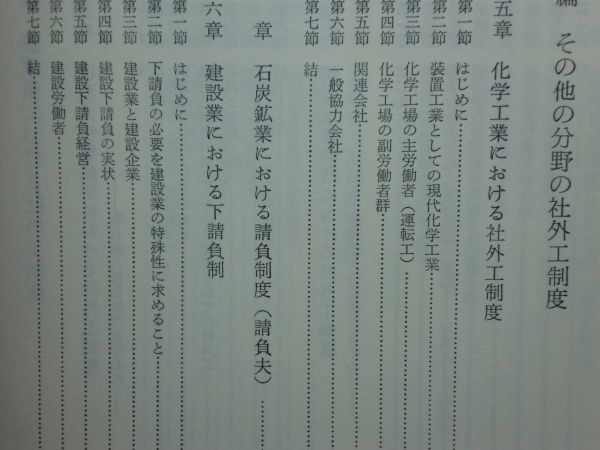 編 その他の分野の社外工制度
五章 化学工業における社外工制度
第一節 はじめに
第二節 装置工業としての現代化学工業
第三節 化学工場の主労働者（運転工）
第四節 化学工場の副労働者群
第五節 関連会社
第六節 一般協力会社
第七節 結
章 石炭鉱業における請負制度（請負夫）
六章 建設業における下請負制
第一節 はじめに
第二節 下請負の必要を建設業の特殊性に求めること
第三節 建設業と建設企業
第四節 建設下請負の実状
第五節 建設下請負経営
第六節 建設労働者
第七節 結